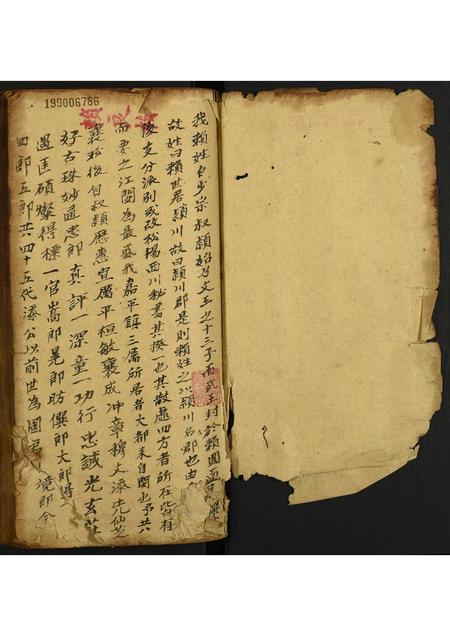 199006786
賴氏
我賴姓自少宗叔穎始乃文王之十三子而武王封於賴國
故姓曰賴世居潁川故曰潁川郡是則賴姓之以潁川名郡也由
後支分派別或改松楊西川秘書其揆一也其散處四方者所在皆有
而妻之江閩為最盛我嘉平鎮三屬所居者大都來自閩也予共八
襄松後自叔穎歷惠宣厲平桓敏襄成冲章穆文添先仙芝
好古珠妙通忠郎真評一深童一功行忠誠光玄
遇匡碩燦得標一官嵩郎晃郎昉僎郎大郎
四郎五郎共四十五代添公以前世為國君 境即今